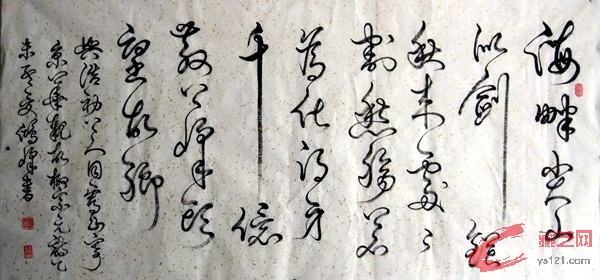 海畔尖山
似劍鋩
秋來處々
割愁腸若
為化得身
千億
散上峰頭
望故鄉
與浩初上人同看山寄
京華親故柳宗元詩乙
未書
之网
ys121.com